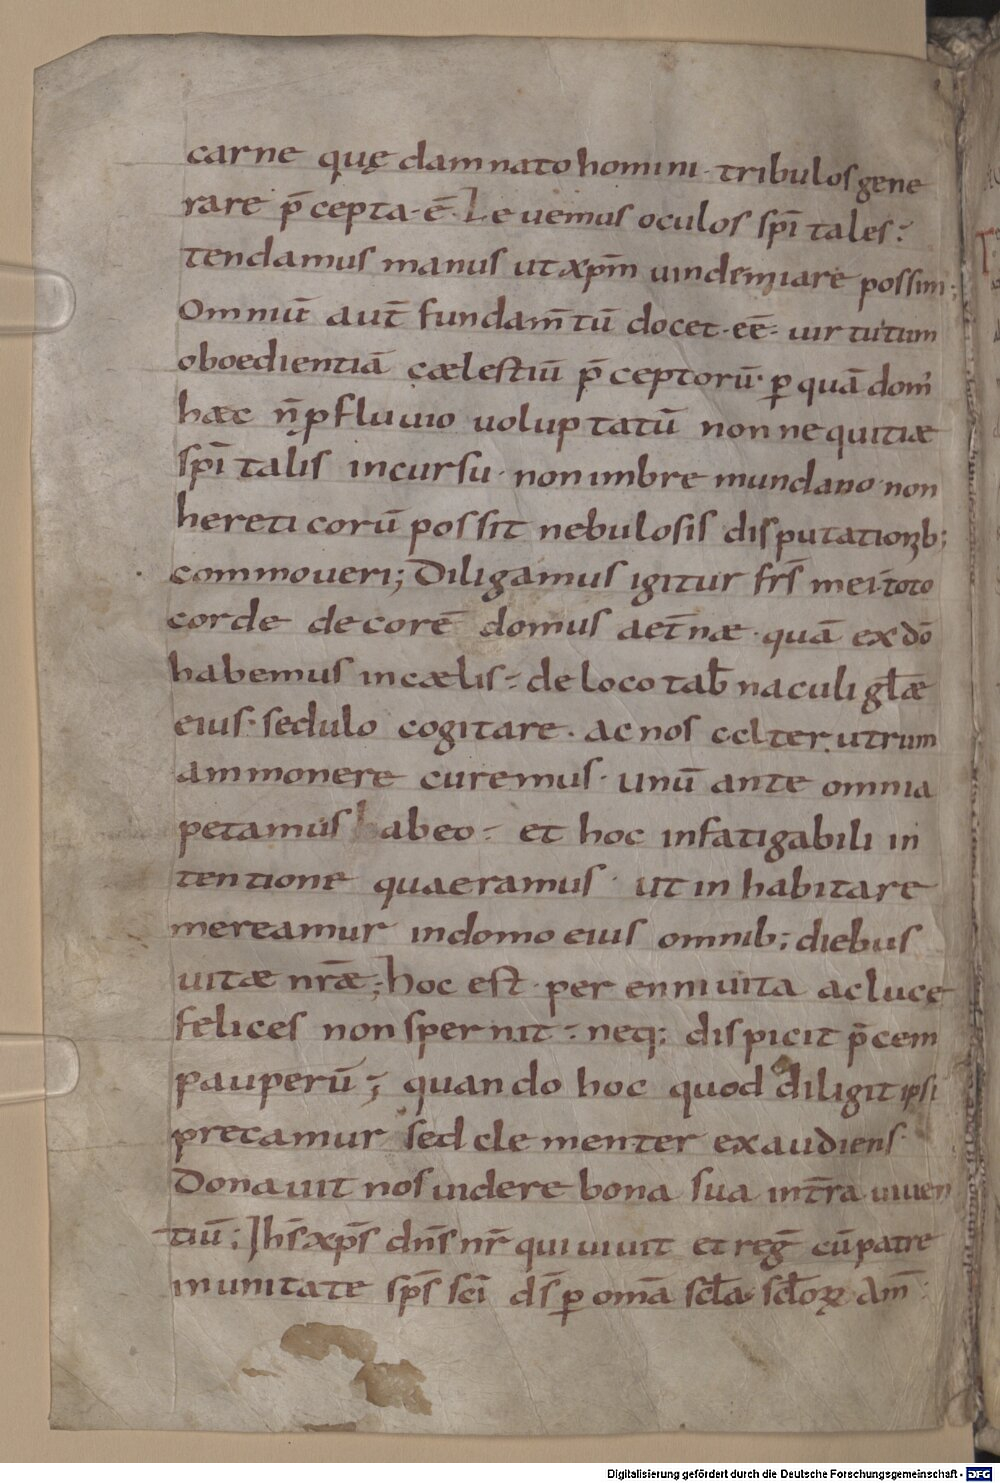 carne quę damnato homini · tribulos gene
rare p̄cepta · ē · Leuemus oculos sp̄itales :
tendamus manus ut xp̄m uindemiare possim ;
Omniū aut̄ fundam̄tū docet · eē · uirtutum
oboedientiā cælestiū p̄ceptorū · ꝑ quā dom̄
hæc n̄ ꝑ fluuio uoluptatū non nequitiæ
sp̄italis incursu · non imbre mundano · non
hereticorū possit nebulosis disputationib ;
commoueri ; Diligamus igitur fr̄s mei · toto
corde decorē domus aet̄næ · quā ex dō
habemus in cælis : de loco tab̄naculi gl̄æ
eius · sedulo cogitare · ac nos alterutrum
ammonere curemus · unū ante omnia
petamus habeo : et hoc infatigabili in
tentione quaeramus · ut inhabitare
mereamur in domo eius omnib ; diebus
uitæ nr̄æ ; hoc est · per enni uita ac luce
felices non spernit : neq ; dispicit p̄cem
pauperū ; quando hoc quod diligit ipsi
precamur sed clementer exaudiens ·
Donauit nos uidere bona sua int̄ra uiuen
tiū ; Ih̄s xp̄s dn̄s nr̄ qui uiuit et reḡ cū patre
in unitate sp̄s sc̄i d̄s ꝑ om̄a scl̄a scl̄oꝝ Am̄ :
Digitalisierung gefördert durch die Deutsche Forschungsgemeinschaft - DFG